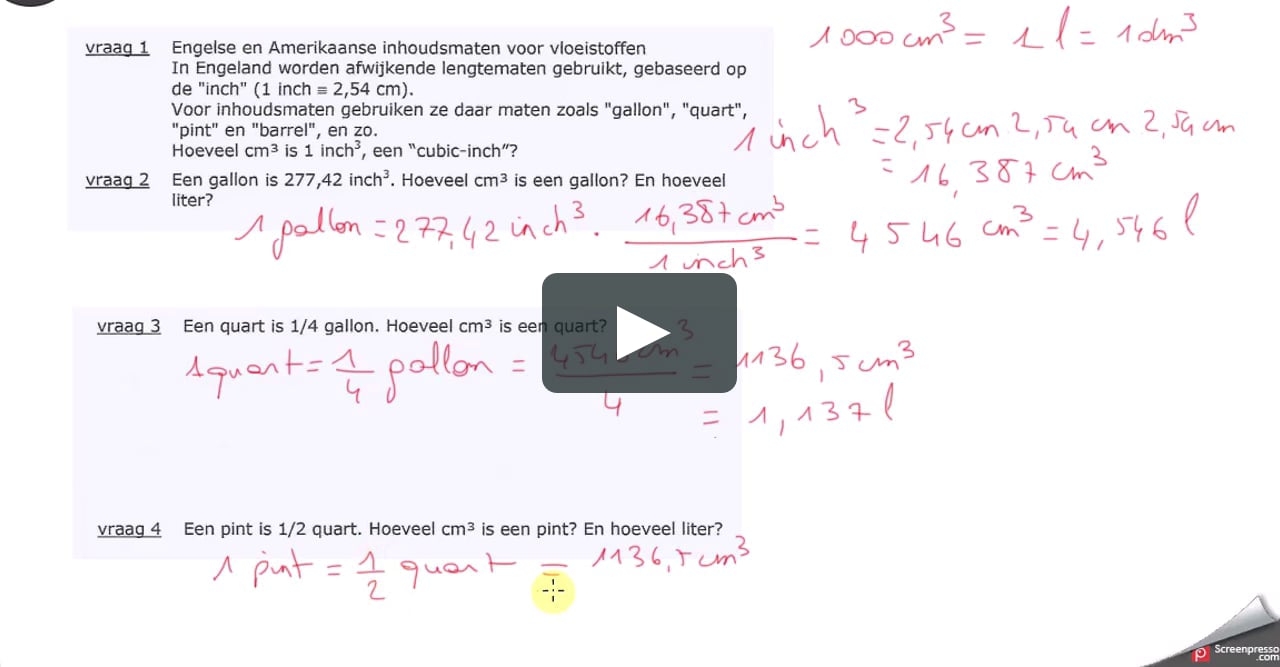 1000 cm³ = 1 l = 1 dm³
vraag 1 Engelse en Amerikaanse inhoudsmaten voor vloeistoffen
In Engeland worden afwijkende lengtematen gebruikt, gebaseerd op
de "inch" (1 inch ≡ 2,54 cm).
Voor inhoudsmaten gebruiken ze daar maten zoals "gallon", "quart",
"pint" en "barrel", en zo.
Hoeveel cm³ is 1 inch³, een “cubic-inch”?
1 inch³ = 2,54 cm 2,54 cm 2,54 cm
= 16,387 cm³
vraag 2 Een gallon is 277,42 inch³. Hoeveel cm³ is een gallon? En hoeveel
liter?
1 gallon = 277,42 inch³ . 16,387 cm³ / 1 inch³ = 4546 cm³ = 4,546 l
vraag 3 Een quart is 1/4 gallon. Hoeveel cm³ is een quart?
1 quart = 1/4 gallon = 454 cm³ / 4 = 1136,5 cm³
= 1,137 l
vraag 4 Een pint is 1/2 quart. Hoeveel cm³ is een pint? En hoeveel liter?
1 pint = 1/2 quart = 1136,5 cm³
Screenpresso
.com